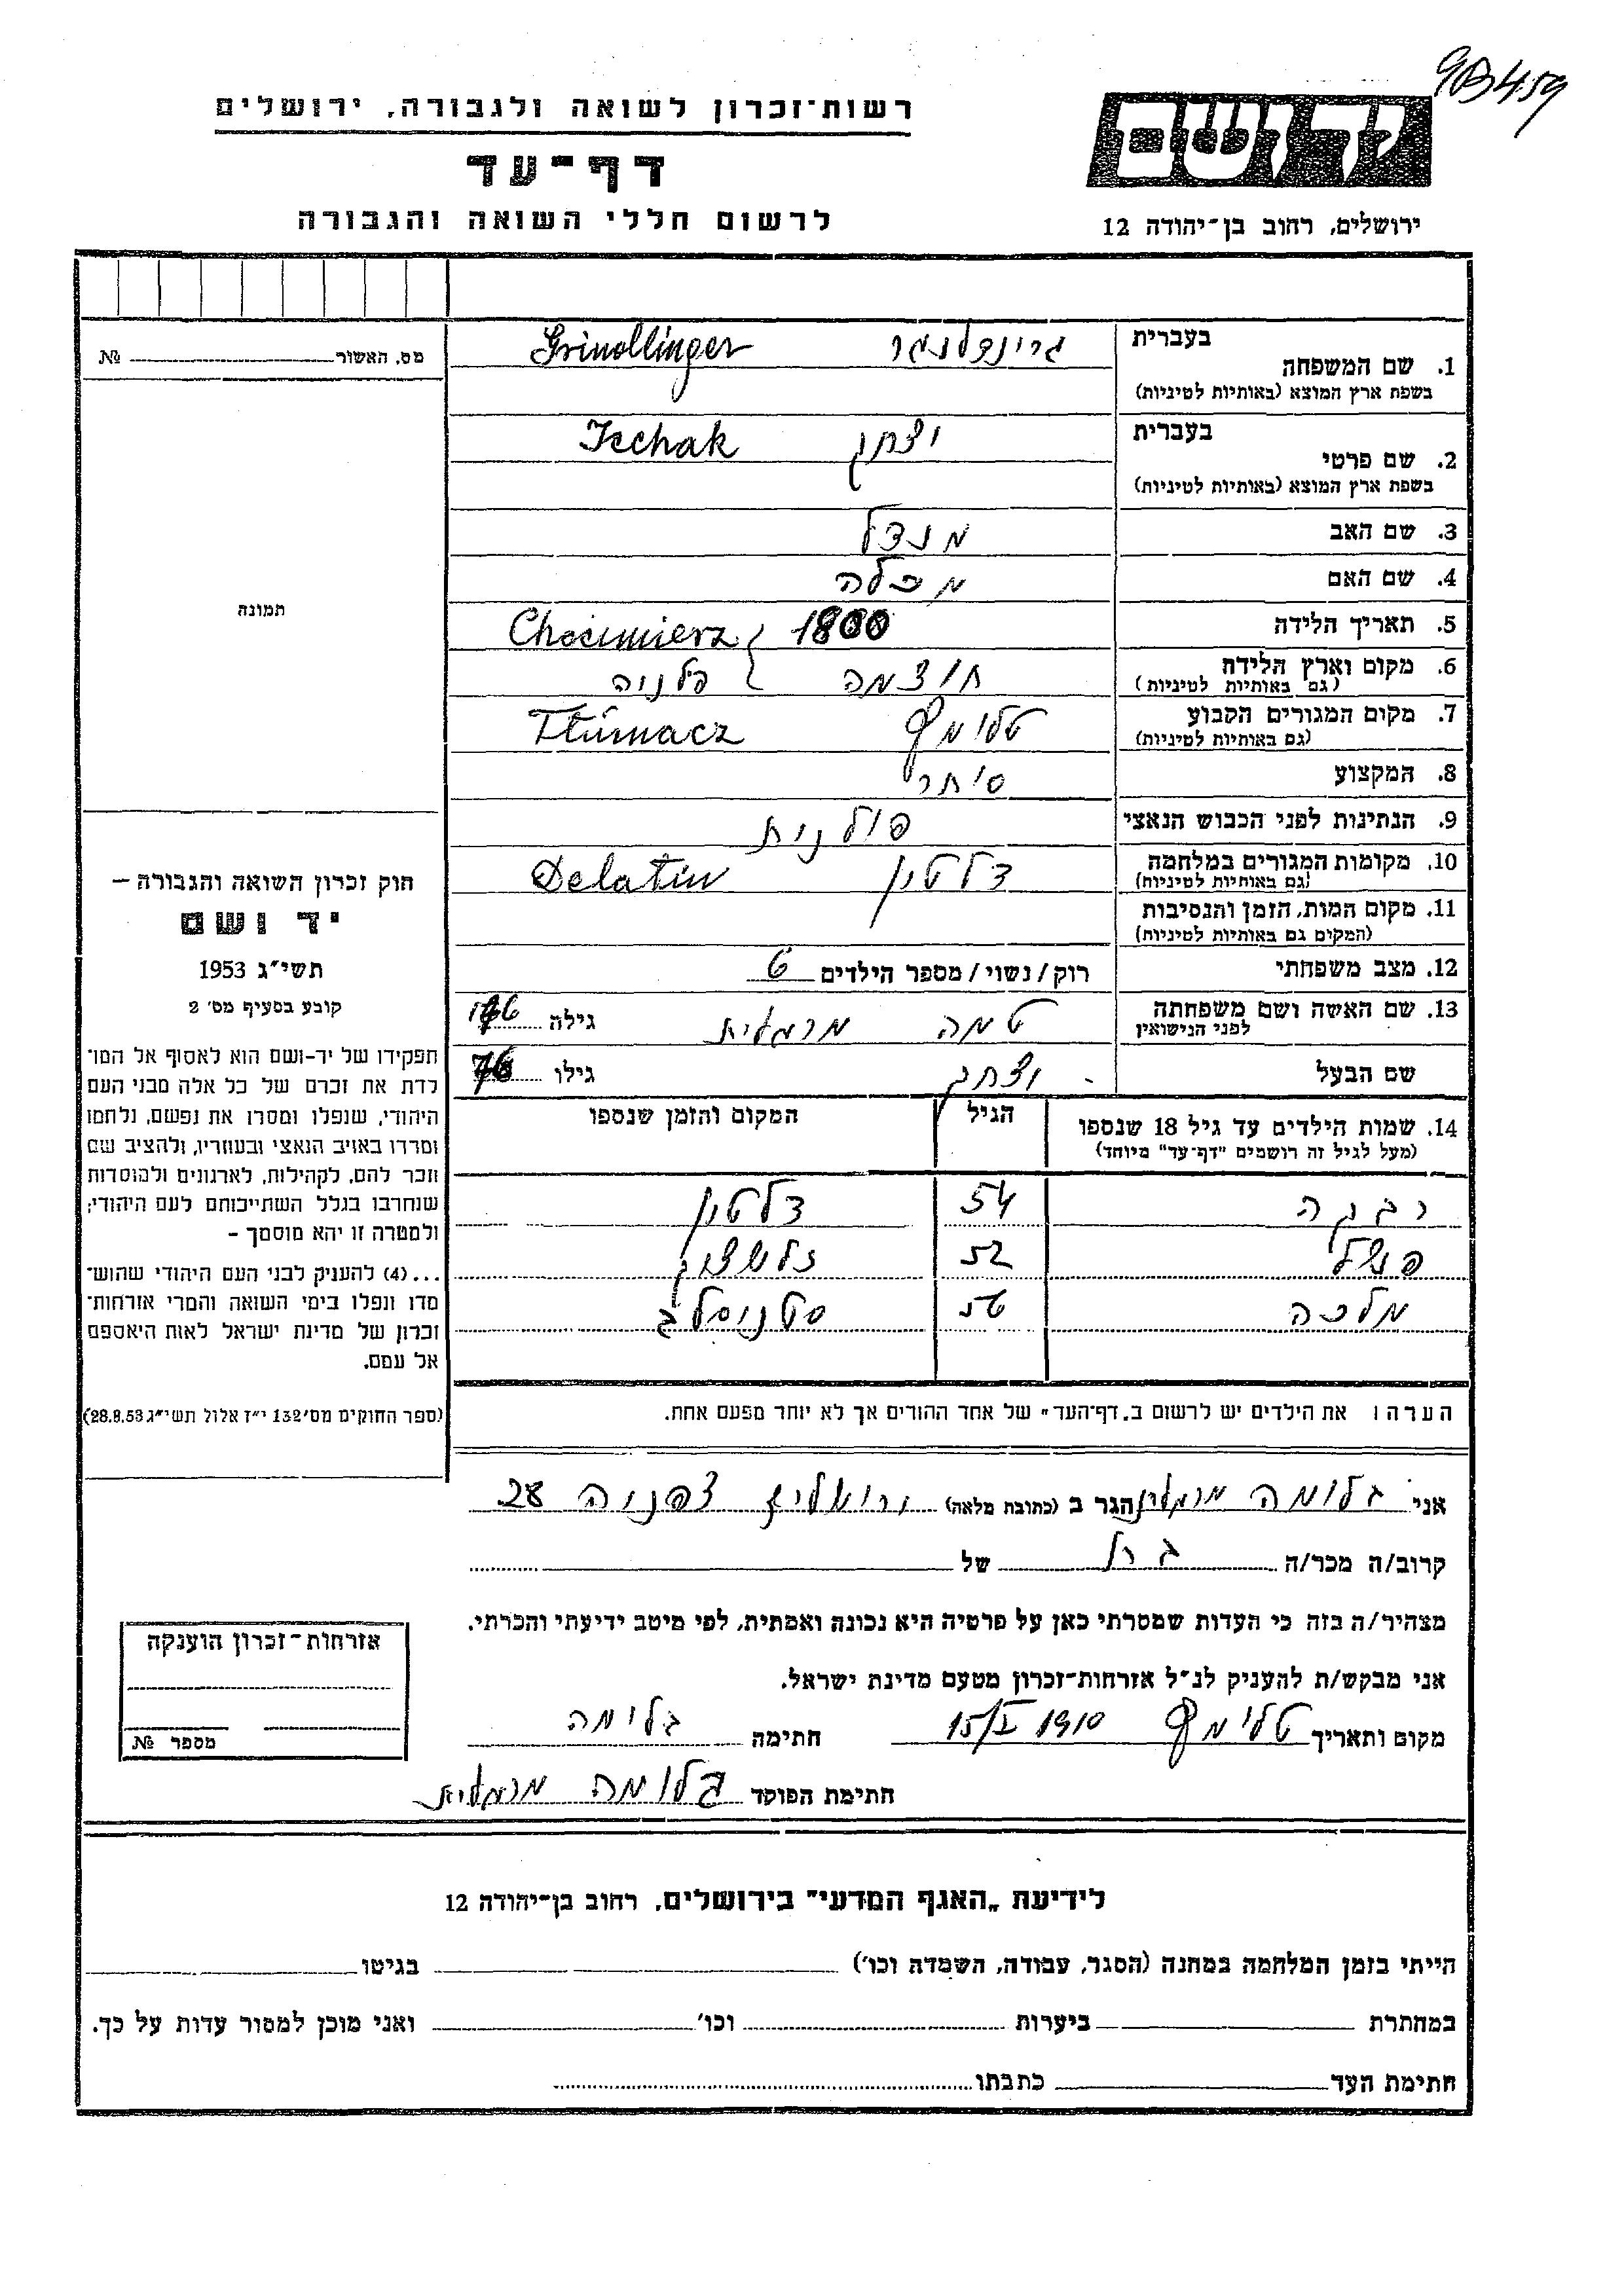 9B459
רשות־זכרון לשואה ולגבורה, ירושלים
דף־עד
לרשום חללי השואה והגבורה
יד ושם
ירושלים, רחוב בן־יהודה 12
מס. האשור № 
תמונה
חוק זכרון השואה והגבורה —
יד ושם
תשי״ג 1953
קובע בסעיף מס׳ 2
תפקידו של יד-ושם הוא לאסוף אל המו־
לדת את זכרם של כל אלה מבני העם
היהודי, שנפלו ומסרו את נפשם, נלחמו
ומרדו באויב הנאצי ובעוזריו, ולהציב שם
וזכר להם, לקהילות, לארגונים ולמוסדות
שנחרבו בגלל השתייכותם לעם היהודי;
ולמטרה זו יהא מוסמך –
...(4) להעניק לבני העם היהודי שהוש־
מדו ונפלו בימי השואה והמרי אזרחות־
זכרון של מדינת ישראל לאות היאספם
אל עמם.
(ספר החוקים מס׳ 132 י״ז אלול תשי״ג 28.8.53)
בעברית
1. שם המשפחה גרינדלנגר Grindlinger
בשפת ארץ המוצא (באותיות לטיניות)
בעברית
2. שם פרטי יצחק Icchak
בשפת ארץ המוצא (באותיות לטיניות)
3. שם האב מנדל
4. שם האם מכלה
5. תאריך הלידה 1880 Chocimierz
6. מקום וארץ הלידה חוצמה פולניה
(גם באותיות לטיניות)
7. מקום המגורים הקבוע טלומץ Tłumacz
(גם באותיות לטיניות)
8. המקצוע סוחר
9. הנתינות לפני הכבוש הנאצי פולנית
10. מקומות המגורים במלחמה דלטין Delatin
(גם באותיות לטיניות)
11. מקום המות, הזמן והנסיבות
(המקום גם באותיות לטיניות)
12. מצב משפחתי רוק/נשוי/מספר הילדים 6
13. שם האשה ושם משפחתה טמה גילה 76
לפני הנישואין
שם הבעל יצחק גילו 76
14. שמות הילדים עד גיל 18 שנספו הגיל המקום והזמן שנספו
(מעל לגיל זה רושמים "דף־עד" מיוחד)
רבקה 54 דלטין
52
מלכה 56 סטניסלב
הערה: את הילדים יש לרשום ב„דף־העד״ של אחד ההורים אך לא יותר מפעם אחת.
אני בלומה הגר ב (כתובת מלאה) ירושלים צפניה 28
קרוב/ה מכר/ה של
מצהיר/ה בזה כי העדות שמסרתי כאן על פרטיה היא נכונה ואמתית, לפי מיטב ידיעתי והכרתי.
אני מבקש/ת להעניק לנ״ל אזרחות־זכרון מטעם מדינת ישראל.
מקום ותאריך טלומץ 1910 15/I חתימה בלומה
חתימת הפוקד בלומה
אזרחות־זכרון הוענקה
מספר №
לידיעת „האגף המדעי״ בירושלים, רחוב בן־יהודה 12
הייתי בזמן המלחמה במחנה (הסגר, עבודה, השמדה וכו׳) בגיטו
במחתרת ביערות וכו׳ ואני מוכן למסור עדות על כך.
חתימת העד כתבתו